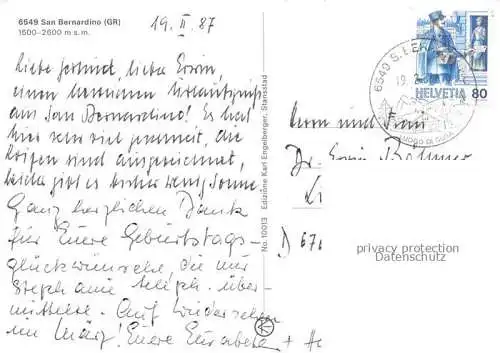 6549 San Bernardino (GR)
1600-2600 m s.m.
19. II. 87
Liebe Gertrud, lieber Erwin,
einen warmen Urlaubsgruß
aus San Bernardino! Es hat
hier sehr viel geschneit, die
Loipen sind ausgezeichnet,
leider gibt es bisher wenig Sonne
Ganz herzlichen Dank
für Euere Geburtstags-
glückwünsche, die mir
Stephan teleph. über-
mittelte. Auf Wiedersehen
im März! Euere Elisabeth +
No. 10013 Edizione Karl Engelberger, Stansstad
HELVETIA 80
6549 S. BER
19. 2.
Herrn und Frau
Dr. Erwin Böhmer
D 676
privacy protection
Datenschutz